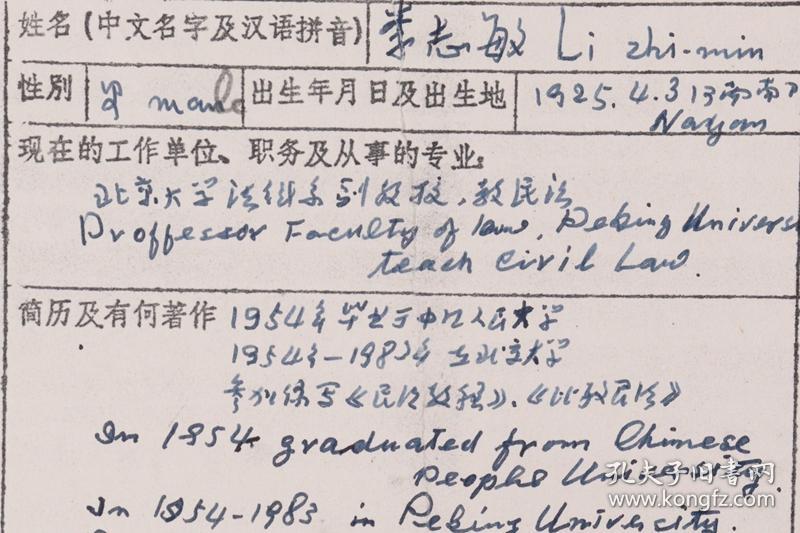 姓名(中文名字及汉语拼音) 李志敏 Li zhi-min
性别 男 male 出生年月日及出生地 1925.4.3 河南南
Nayan
现在的工作单位、职务及从事的专业:
北京大学法律系副教授,教民法
Proffessor Faculty of law, Peking Univers
teach Civil Law.
简历及有何著作 1954年毕业于中国人民大学
1954年-1983年 在北京大学
参加编写《民法教程》、《比较民法》
In 1954 graduated from Chinese
Peophe University.
In 1954-1983 in Peking University.
孔夫子旧书网
www.kongfz.com